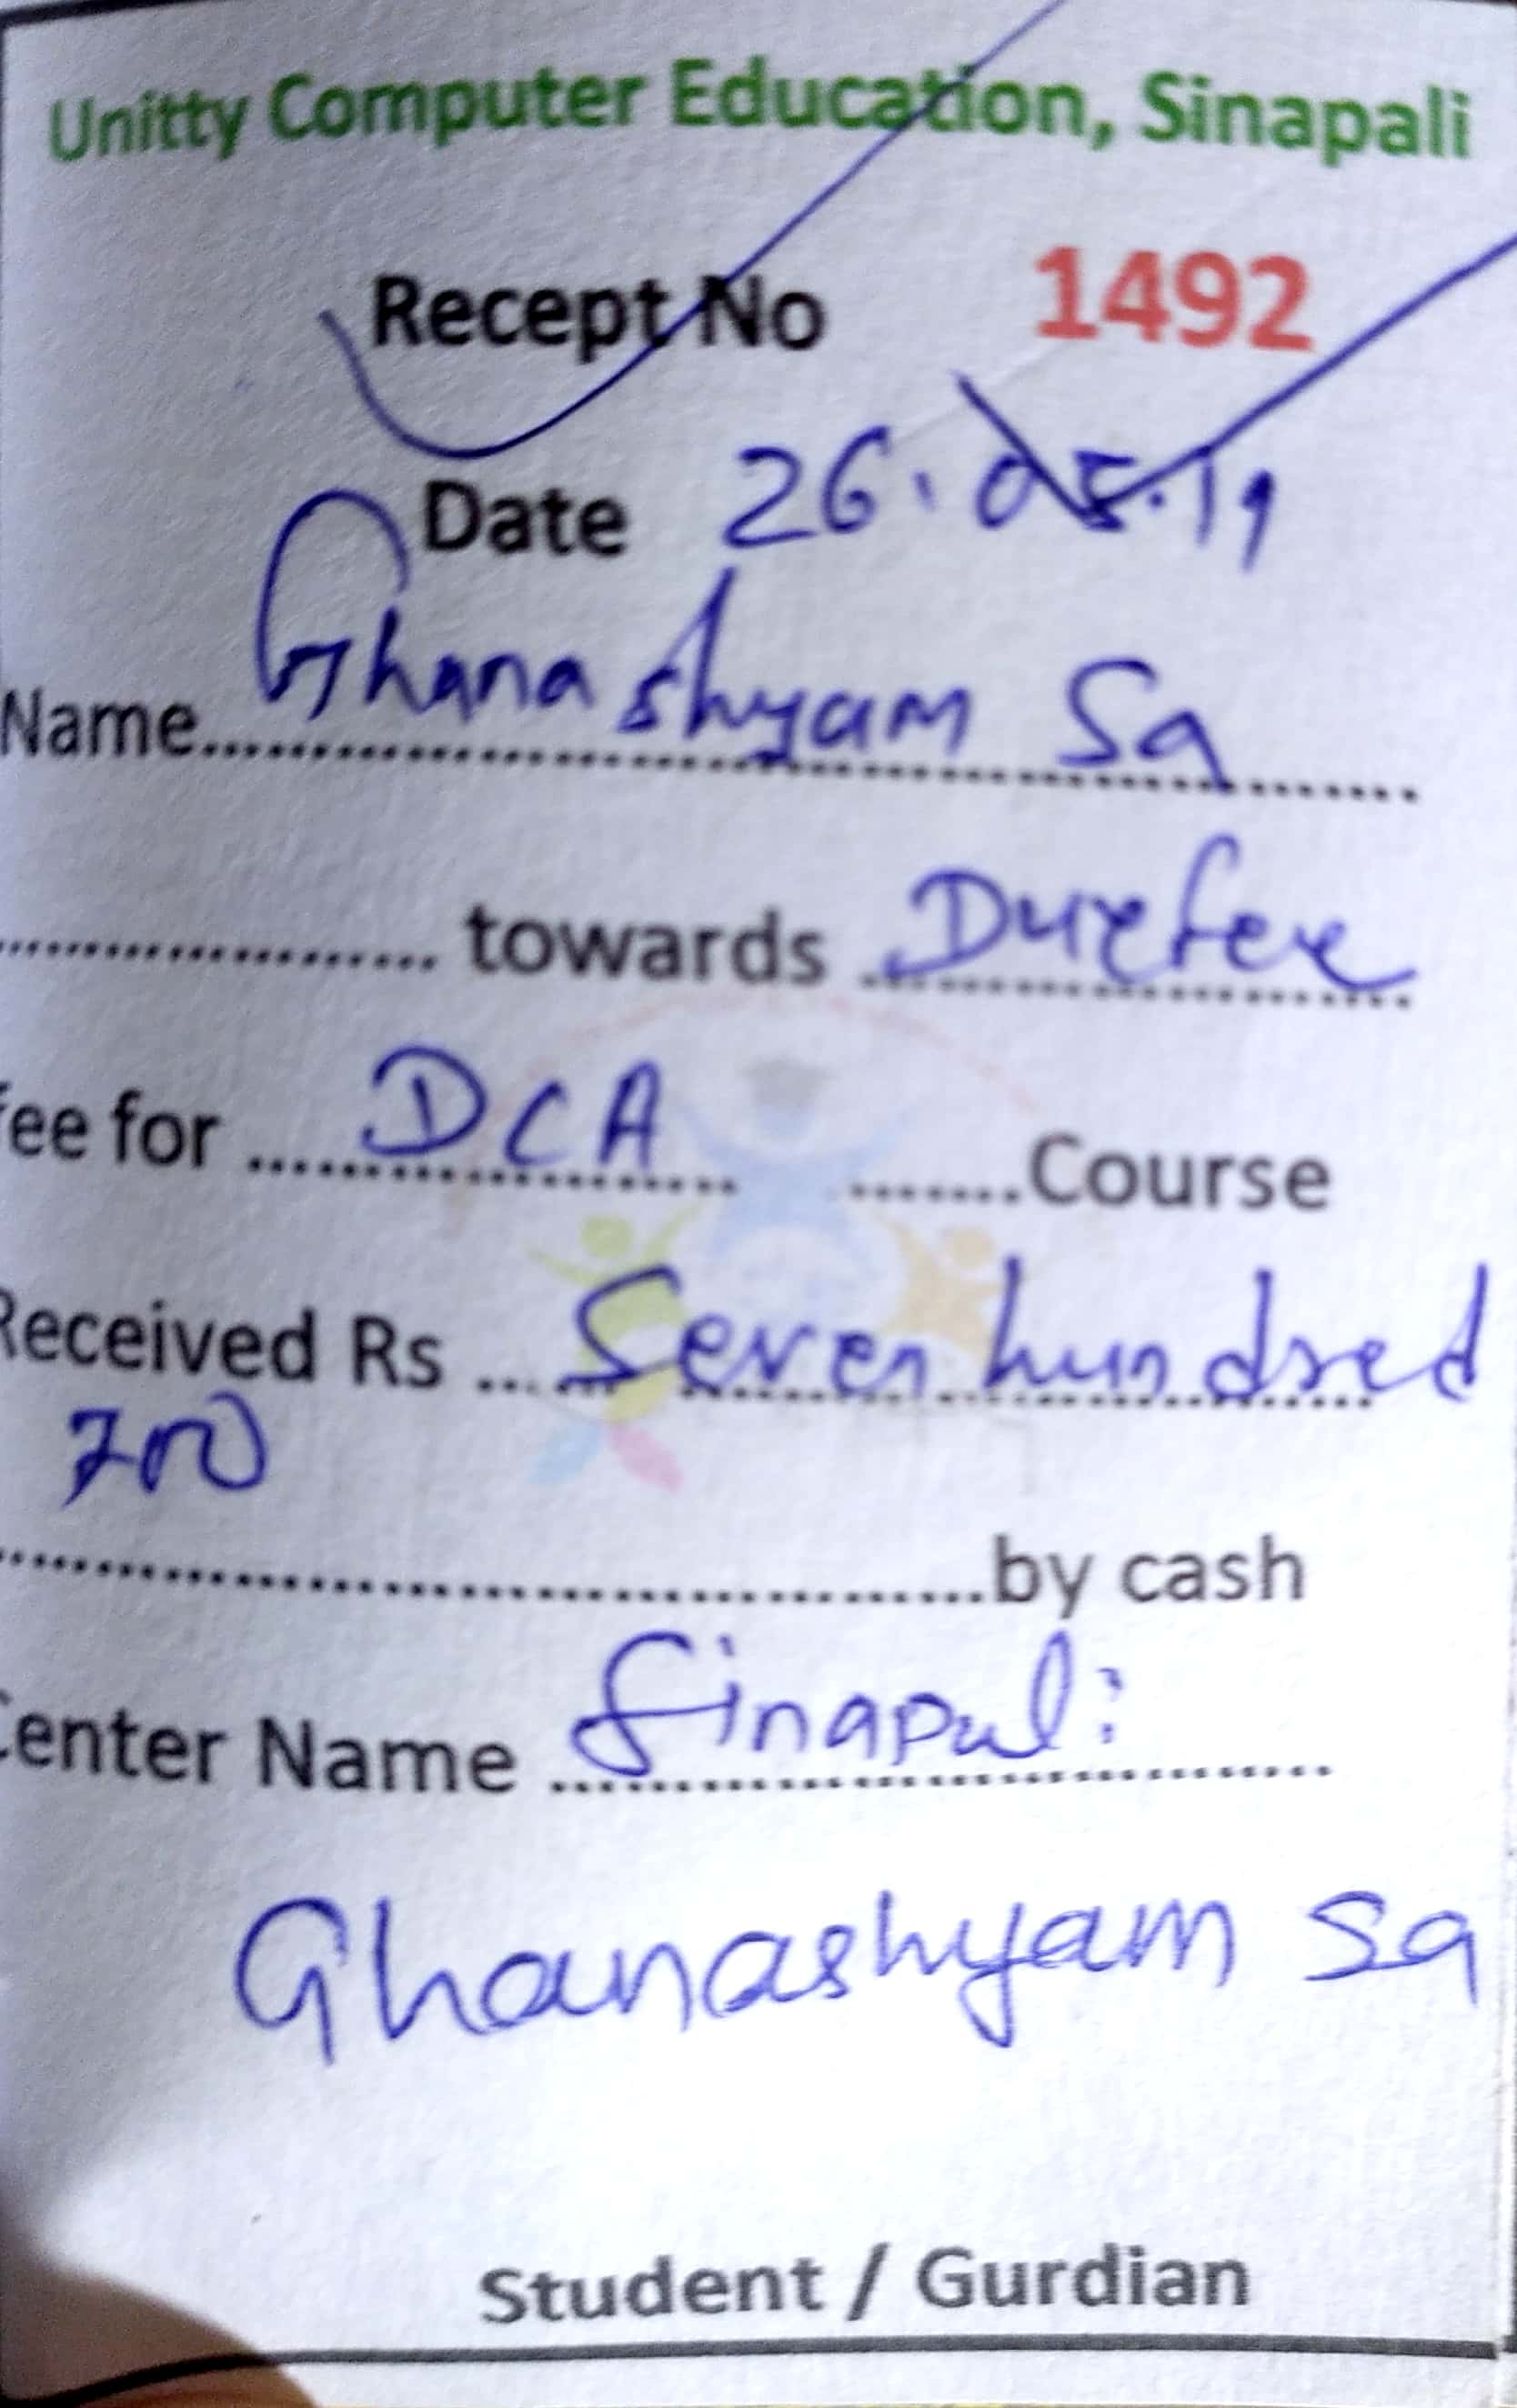 Unitty Computer Education, Sinapali
Recept No 1492
Date 26.05.19
Name Ghanashyam Sa
towards Duefee
fee for DCA Course
Received Rs Seven hundred
700
by cash
Center Name Sinapali
Ghanashyam Sa
Student / Gurdian